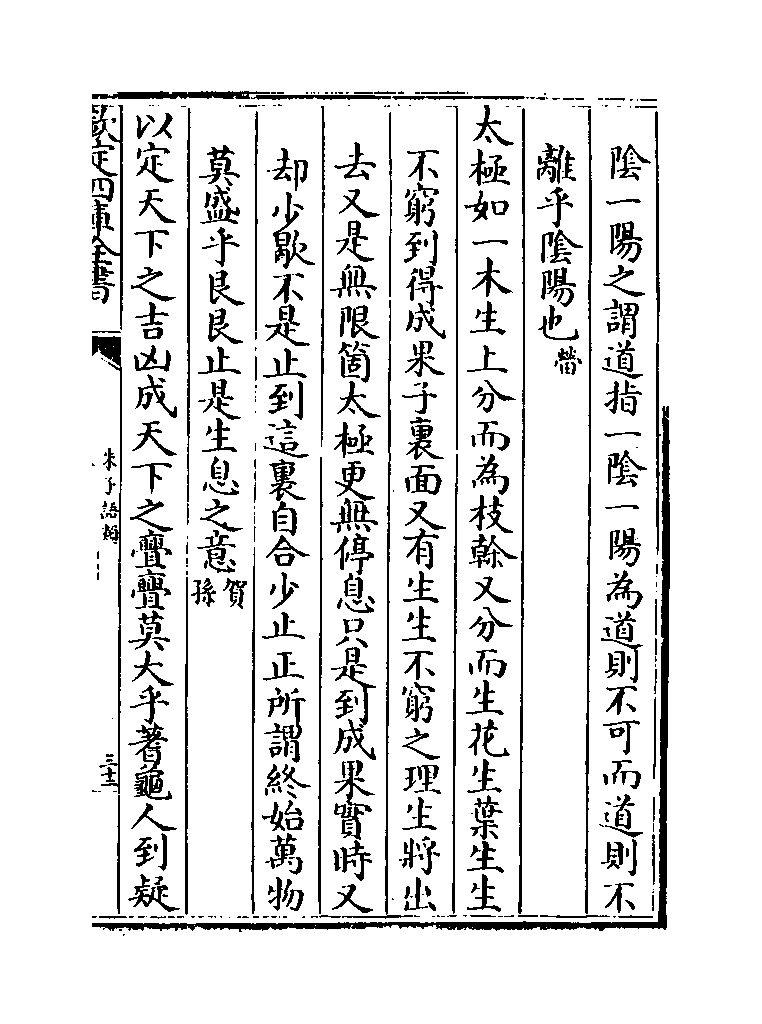 陰一陽之謂道指一陰一陽為道則不可而道則不
離乎陰陽也 㽦
太極如一木生上分而為枝榦又分而生花生葉生生
不窮到得成果子裏面又有生生不窮之理生將出
去又是無限箇太極更無停息只是到成果實時又
却少歇不是止到這裏自合少止正所謂終始萬物
莫盛乎艮艮止是生息之意 賀孫
以定天下之吉凶成天下之亹亹莫大乎蓍龜人到疑
欽定四庫全書
朱子語類
三十二